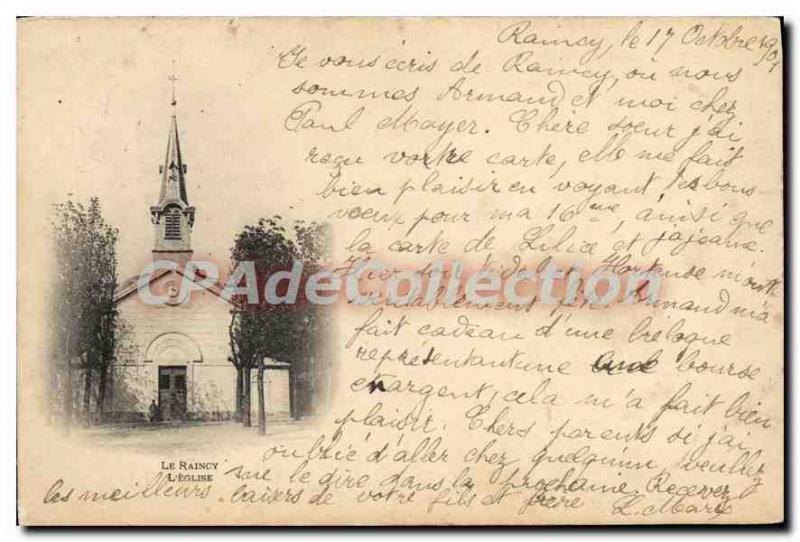 Raincy, le 17 Octobre 1901
Je vous écris de Raincy, ou nous
sommes Armand et moi chez
Paul Mayer. Chère soeur j'ai
reçu vortre carte, elle me fait
bien plaisir en voyant les bons
voeux pour ma 16me, ainsi que
la carte de Lilie et
Hier soir Adolf Hortense m'ont
véritablement fété, Armand m'a
fait cadeau d'une breloque
représentant une bourse
en argent, cela m'a fait bien
plaisir. Chers parents si j'ai
oublié d'aller chez quelqu'un, veuillez
me le dire dans la prochaine. Recevez
les meilleurs baisers de votre fils et frère
L. Marx
CPACollection.com
LE RAINCY
L'ÉGLISE